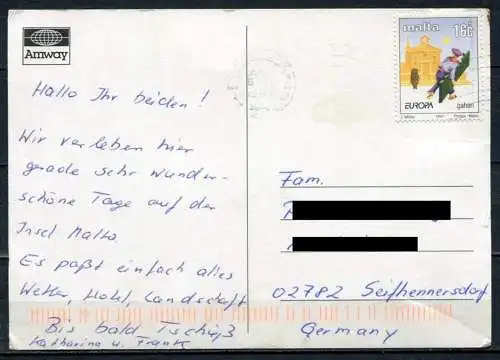 Amway
Hallo Ihr beiden!
Wir verleben hier
gerade sehr wunder-
schöne Tage auf der
Insel Malta.
Es paßt einfach alles
Wetter, Hotel, Landschaft
Bis bald Tschüß
Katharina u. Frank
malta 16c
EUROPA
gahan
Fam.
02782 Seifhennersdorf
Germany